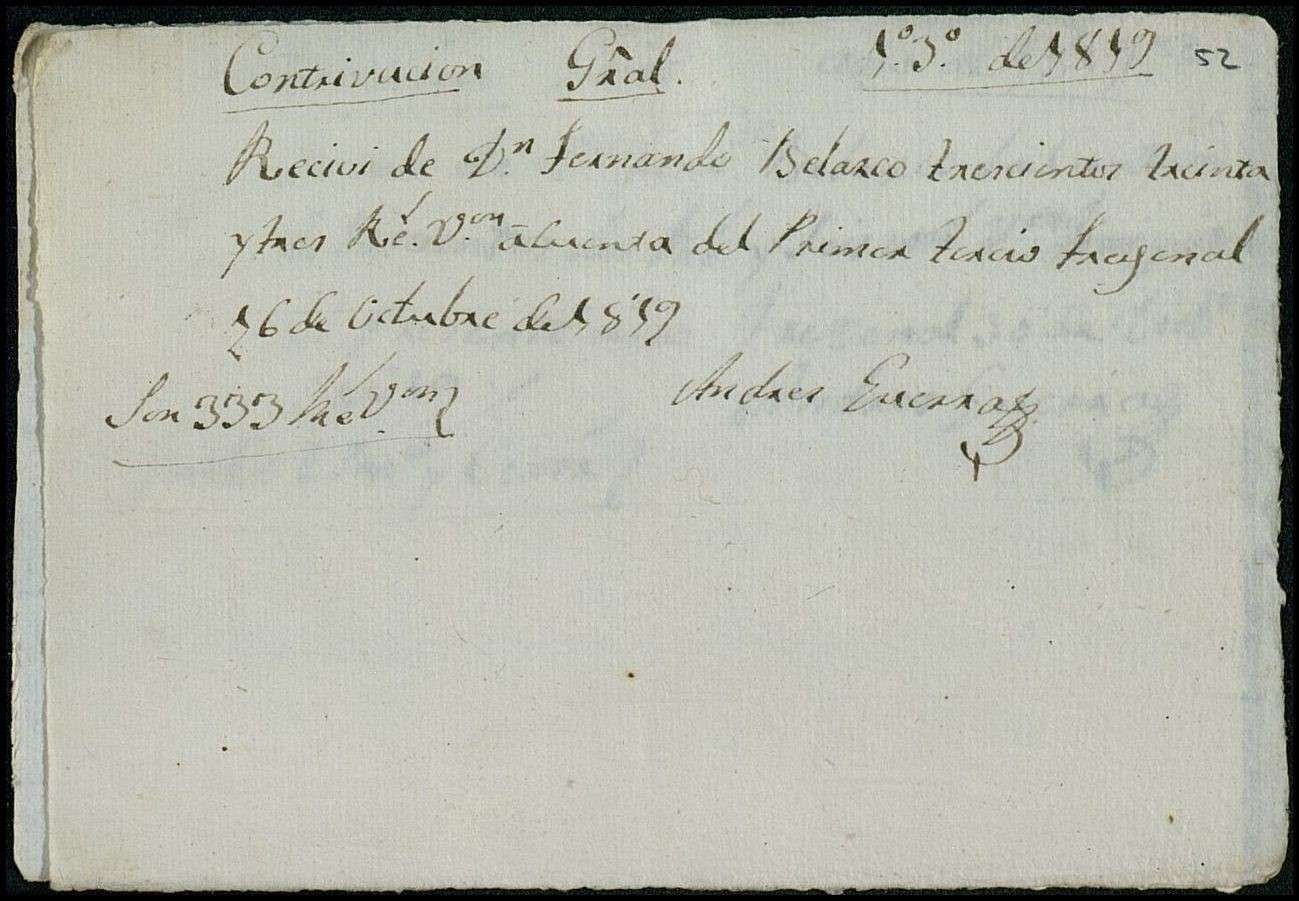 Contrivucion Gral. 1º. 3º. de 1819 52
Recivi de Dn. Fernando Belazco trescientos treinta
y tres Rs. Von. acuenta del Primer tercio Fregenal
16 de Octubre de 1819
Son 333 Rs. Von
Andres Guerra